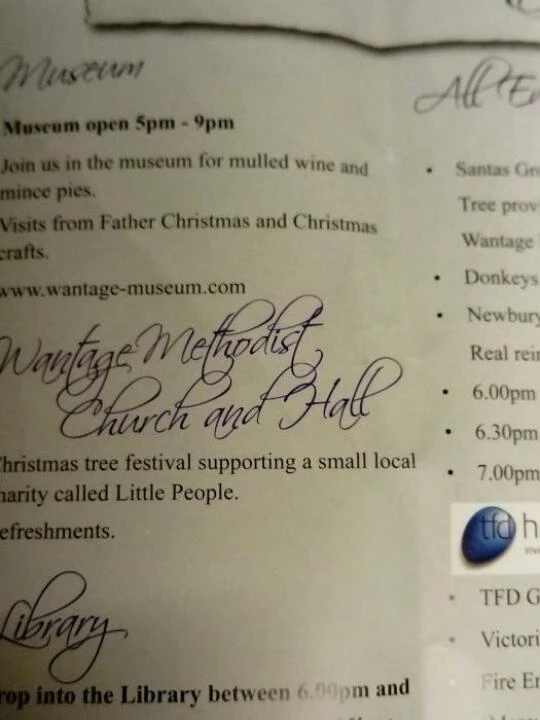 Museum
Museum open 5pm - 9pm
Join us in the museum for mulled wine and
mince pies.
Visits from Father Christmas and Christmas
crafts.
www.wantage-museum.com
Wantage Methodist
Church and Hall
Christmas tree festival supporting a small local
charity called Little People.
efreshments.
Library
rop into the Library between 6.00pm and
All En
Santas Gr
Tree prov
Wantage
Donkeys
Newbury
Real rei
6.00pm
6.30pm
7.00pm
tfd h
TFD G
Victori
Fire En